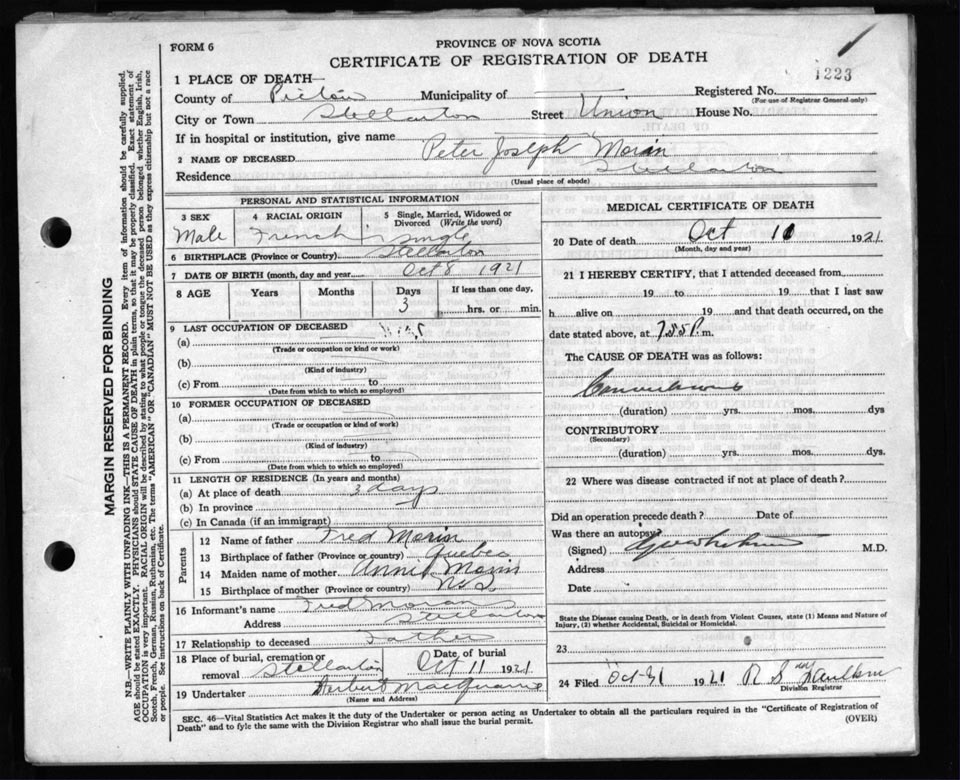 FORM 6
PROVINCE OF NOVA SCOTIA
CERTIFICATE OF REGISTRATION OF DEATH
1223
1 PLACE OF DEATH—
County of Pictou Municipality of Registered No.
(For use of Registrar General only)
City or Town Stellarton Street Union House No.
If in hospital or institution, give name
2 NAME OF DECEASED Peter Joseph Moran
Residence Stellarton
(Usual place of abode)
MARGIN RESERVED FOR BINDING
N.B.—WRITE PLAINLY WITH UNFADING INK—THIS IS A PERMANENT RECORD. Every item of information should be carefully supplied.
AGE should be stated EXACTLY. PHYSICIANS should STATE CAUSE OF DEATH in plain terms, so that it may be properly classified. Exact statement of
OCCUPATION is very important. RACIAL ORIGIN will be described by stating to what people or tongue the deceased person belonged whether English, Irish,
Scotch, French, German, Russian, Ruthenian, etc. The terms "AMERICAN" or "CANADIAN" MUST NOT BE USED as they express citizenship but not a race
or people. See instructions on back of Certificate.
PERSONAL AND STATISTICAL INFORMATION
3 SEX 4 RACIAL ORIGIN 5 Single, Married, Widowed or
Divorced (Write the word)
Male French single
6 BIRTHPLACE (Province or Country) Stellarton
7 DATE OF BIRTH (month, day and year) Oct 8 1921
8 AGE Years Months Days If less than one day,
3 hrs. or min.
9 LAST OCCUPATION OF DECEASED
(a)
(Trade or occupation or kind or work)
(b)
(Kind of industry)
(c) From to
(Date from which to which so employed)
10 FORMER OCCUPATION OF DECEASED
(a)
(Trade or occupation or kind of work)
(b)
(Kind of industry)
(c) From to
(Date from which to which so employed)
11 LENGTH OF RESIDENCE (In years and months)
(a) At place of death 3 days
(b) In province
(c) In Canada (if an immigrant)
Parents
12 Name of father Fred Moran
13 Birthplace of father (Province or country) Quebec
14 Maiden name of mother Annie
15 Birthplace of mother (Province or country) N.S.
16 Informant's name Fred Moran
Address Stellarton
17 Relationship to deceased Father
18 Place of burial, cremation or Date of burial
removal Stellarton Oct 11 1921
19 Undertaker Herbert
(Name and Address)
MEDICAL CERTIFICATE OF DEATH
20 Date of death Oct 1921
(Month, day and year)
21 I HEREBY CERTIFY, that I attended deceased from
19 to 19 that I last saw
h alive on 19 and that death occurred, on the
date stated above, at m.
The CAUSE OF DEATH was as follows:
Convulsions
(duration) yrs. mos. dys
CONTRIBUTORY
(Secondary)
(duration) yrs. mos. dys.
22 Where was disease contracted if not at place of death?
Did an operation precede death? Date of
Was there an autopsy
(Signed) M.D.
Address
Date
State the Disease causing Death, or in death from Violent Causes, state (1) Means and Nature of
Injury, (2) whether Accidental, Suicidal or Homicidal.
23
24 Filed 1921 R S
Division Registrar
SEC. 46—Vital Statistics Act makes it the duty of the Undertaker or person acting as Undertaker to obtain all the particulars required in the "Certificate of Registration of
Death" and to fyle the same with the Division Registrar who shall issue the burial permit.
(OVER)